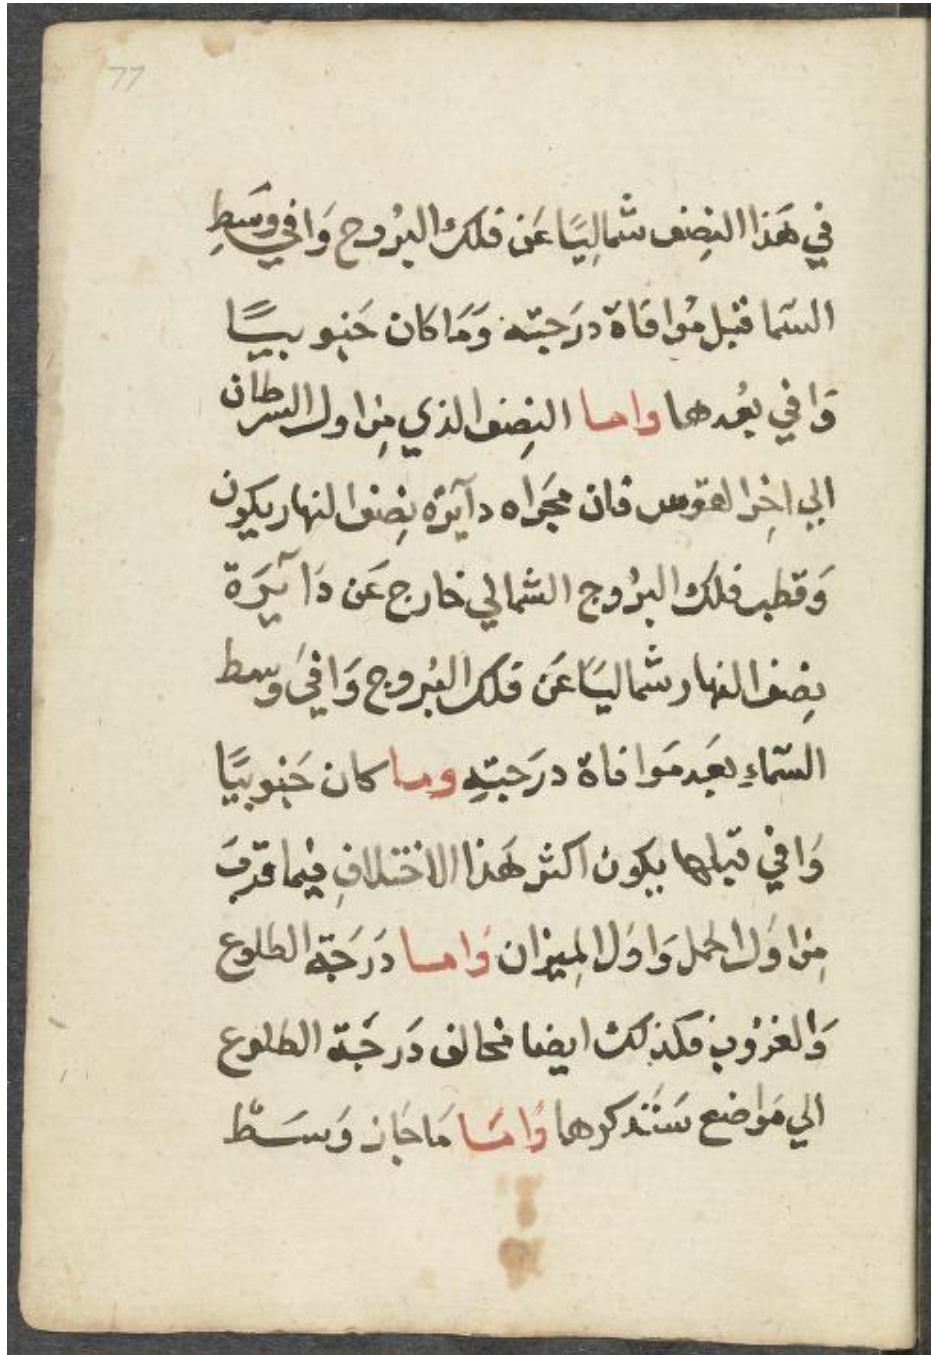 77
في هَذا النِصف شمالِيًا عَن فلك البرُوج وَافي وسَطِ
السَما قبل مُوافاة درَجته وَمَا كان جَنوبيًا
وَافي بعُدها واما النِصف الذي مِن اول السرطان
الي اخِر القوس فان مجَراه دآيرَة نِصف النهار يكون
وَقطب فلك البرُوج الشمالي خارج عَن دَآيرَة
نِصف النهار شماليًا عَن فلك البُروج وَافيَ وَسط
السَماءِ بعَد مَوافاة درَجتهِ وما كان جَنوبيًا
وَافي قبلها يكون اكثر هَذا الاختلافِ فيما قرب
مِن اوَل الحمل وَاوَل المِيزان وَاما دَرَجَة الطلوع
وَالغرُوب فكذلك ايضا مخالف دَرجَة الطلوع
الي مَواضع سَنَذكرها وَامَا مَا جَاز وَسَط